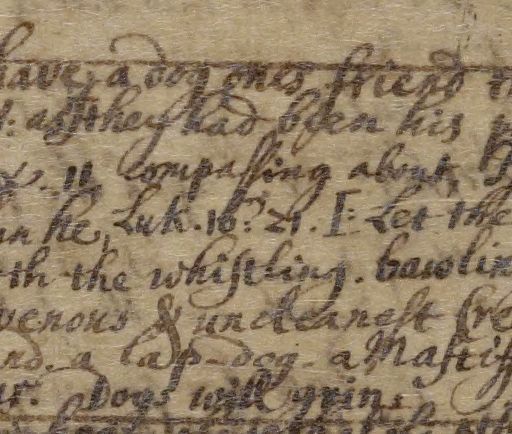 have, a dog ones friend
as if they had been his
11 compassing about,
he, Luk. 16. 21. [: Let the
the whistling. bawlin
venous & uncleanest Cre
a lap-dog a Mastiff
Dogs will grin.